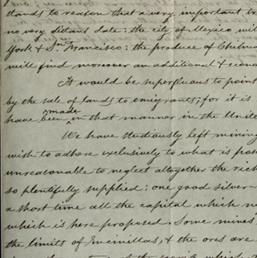 stands to reason that a very important be
no very distant date: the city of Mexico wil
York & San Francisco; the produce of Chihua
will find moreover an additional & econo
It would be superfluous to point
by the sale of lands to emigrants; for it is
have been made in that manner in the Unite
We have studiously left mining
wish to adhere exclusively to what is prac
unreasonable to neglect altogether the rich
so plentifully supplied: one good silver
a short time all the capital which
which is here proposed. Some mines
the limits of & the ores are